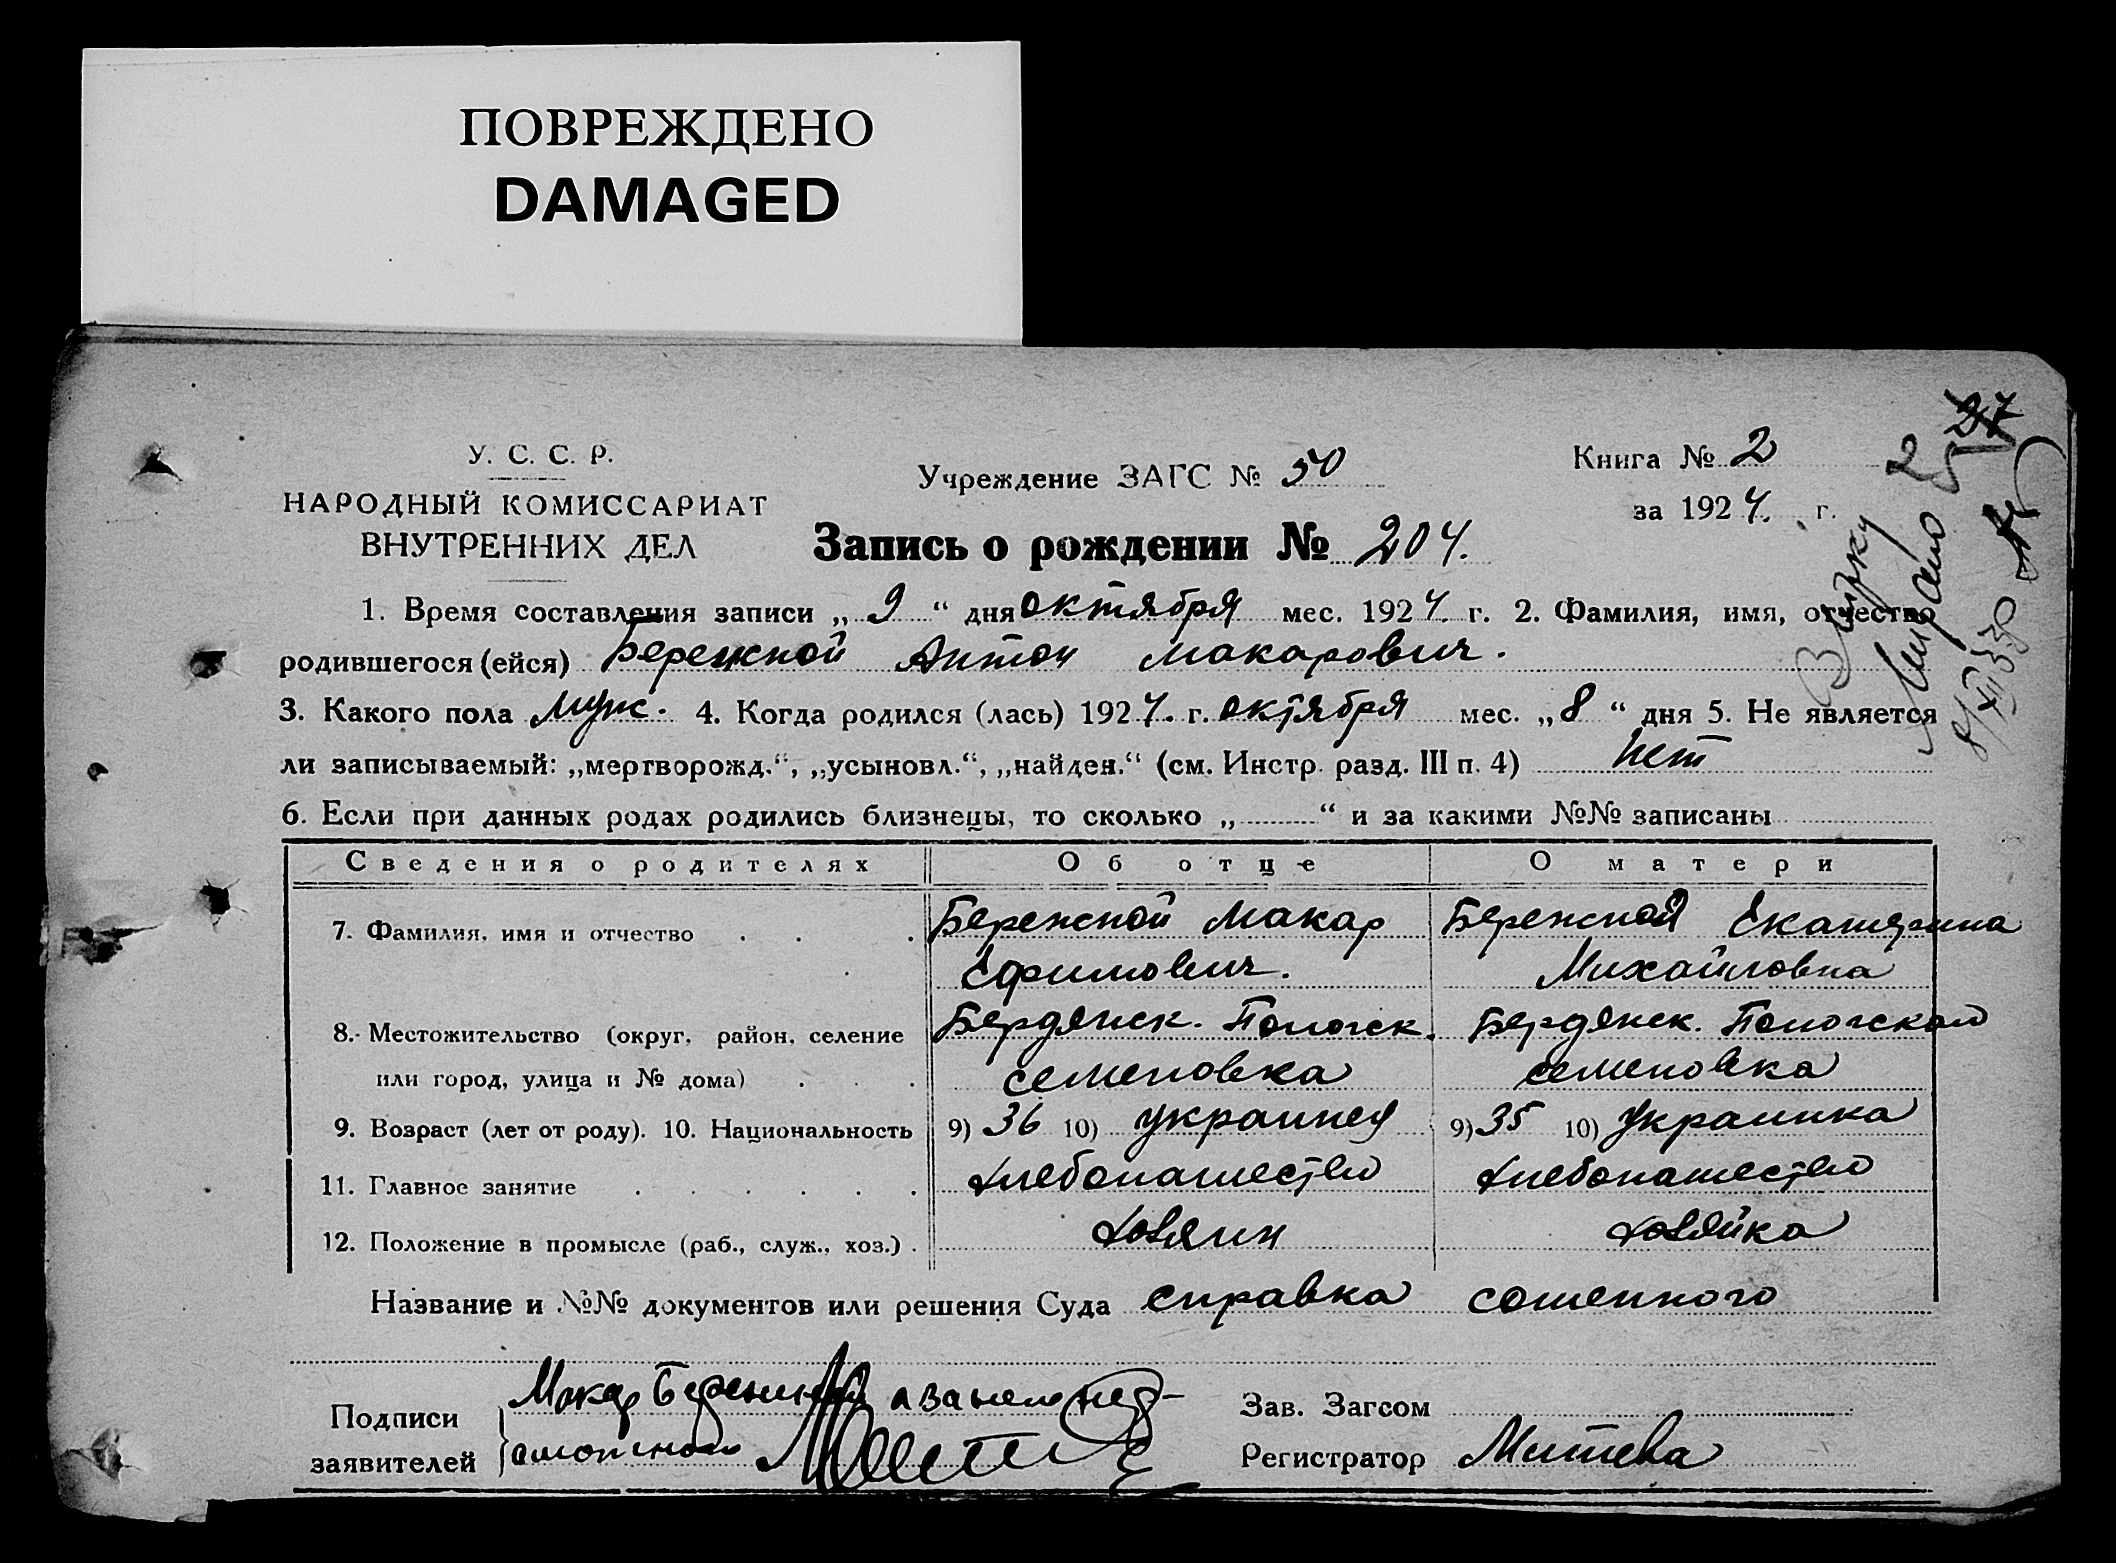 ПОВРЕЖДЕНО
DAMAGED
У. С. С. Р.
НАРОДНЫЙ КОМИССАРИАТ
ВНУТРЕННИХ ДЕЛ
Учреждение ЗАГС № 50
Книга № 2
за 1924. г.
Запись о рождении № 204.
1. Время составления записи „ 9 “ дня октября мес. 1924. г. 2. Фамилия, имя, отчество
родившегося (ейся) Бережной Антон Макарович.
3. Какого пола муж. 4. Когда родился (лась) 1924. г. октября мес. „ 8 “ дня 5. Не является
ли записываемый: „мертворожд.“, „усыновл.“, „найден.“ (см. Инстр. разд. III п. 4) нет
6. Если при данных родах родились близнецы, то сколько „ “ и за какими №№ записаны
Сведения о родителях Об отце О матери
7. Фамилия, имя и отчество . . . Бережной Макар Бережная Екатерина
Ефимович. Михайловна
8. Местожительство (округ, район, селение Бердянск. Пологск. Бердянск. Пологского
или город, улица и № дома) . . семеновка семеновка
9. Возраст (лет от роду). 10. Национальность 9) 36 10) украинец 9) 35 10) Украинка
11. Главное занятие . . . . . . хлебопашество хлебопашество
12. Положение в промысле (раб., служ., хоз.) . хозяин хозяйка
Название и №№ документов или решения Суда справка
Подписи Макар Бережной а за него Зав. Загсом
заявителей Регистратор Митева